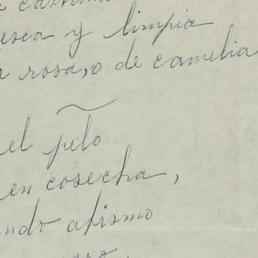 esca y limpia
rosa, o de camelia
el pelo
en cosecha,
ndo apismo